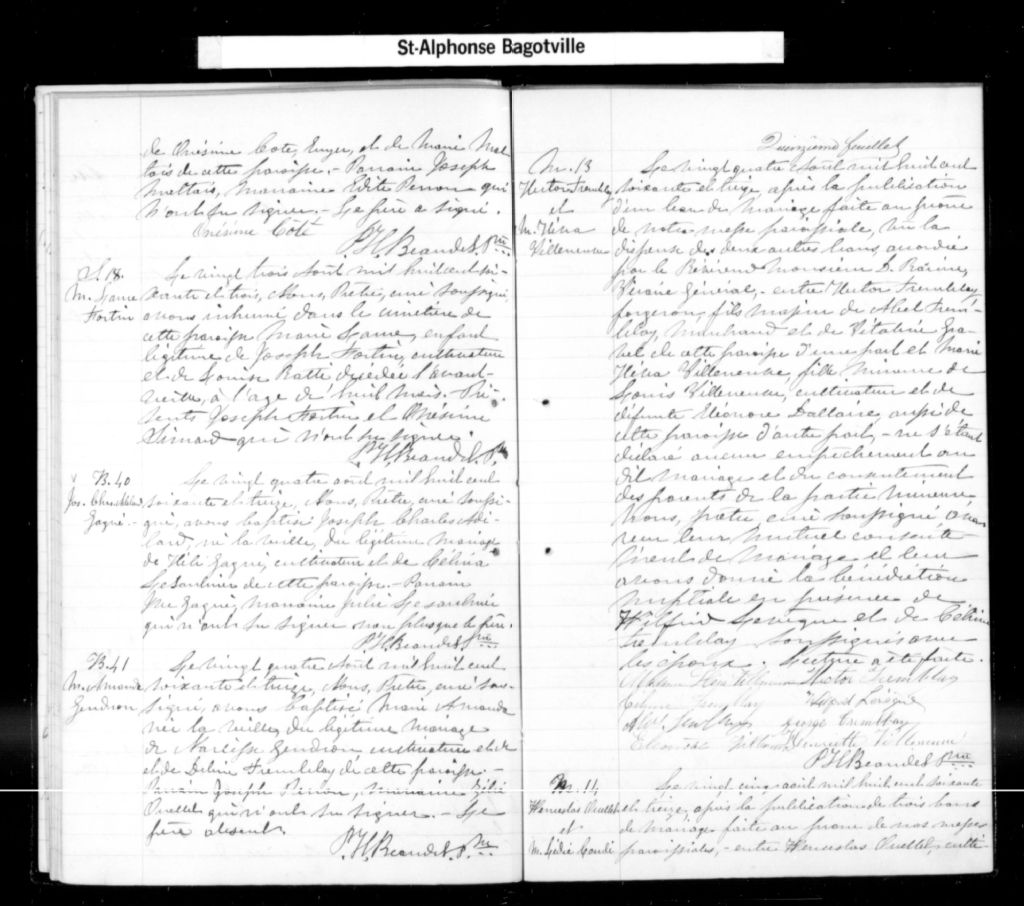 St-Alphonse Bagotville
de Onésime Cote, Enger, et de Marie Mal
tais de cette paroisse. - Parrain Joseph
Maltais, Marraine Edite Perron qui
n'ont su signer. - Le père a signé.
Onésime Côté
P. H. Beaudet Ptre
S. 18.
M. Laure
Fortin
Le vingt trois Août mil huit cent soi-
xante et trois, Nous, Prêtre, curé soussigné,
avons inhumé dans le cimetière de
cette paroisse Marie Laure, enfant
légitime de Joseph Fortin, cultivateur
et de Louise Ratté décédée l'avant-
veille, à l'age de huit mois. Pré-
sents Joseph Fortin et Onésime
Simard qui n'ont su signer.
P. H. Beaudet. Ptre
B. 40
Jos. Chs.
Gagné -
Le vingt quatre août mil huit cent
soixante et treize, Nous, Prêtre, curé soussi-
gné, avons baptisé Joseph Charles
né la veille, du légitime mariage
de Héli Gagné, cultivateur et de Célina
de cette paroisse. - Parrain
Gagné, Marraine Julie
qui n'ont su signer non plus que le père.
P. H. Beaudet Ptre
B. 41
M. Amanda
Gendron
Le vingt quatre Août mil huit cent
soixante et treize, Nous, Prêtre, curé sous-
signé, avons baptisé Marie Amanda
née la veille, du légitime mariage
de Narcisse Gendron cultivateur et de
et de Delina Tremblay de cette paroisse -
Parrain Joseph Perron, Marraine
Ouellet qui n'ont su signer. - Le
père absent.
P. H. Beaudet. Ptre
Quinzième feuillet
M. 13
Hector Tremblay
et
M. Héva
Villeneuve
Le vingt quatre Août mil huit cent
soixante et treize, après la publication
d'un ban de Mariage faite au prône
de notre messe paroissiale, vu la
dispense des deux autres bans, accordée
par le Révérend Monsieur D. Racine,
Vicaire Général, - entre Hector Tremblay
forgeron, fils majeur de Abel Trem-
blay, Marchand et de Vitaline Gra-
vel de cette paroisse d'une part et Marie
Héva Villeneuve, fille mineure de
Louis Villeneuve, cultivateur et de
défunte Eléonore Dallaire aussi de
cette paroisse d'autre part, - ne s'étant
déclaré aucun empêchement au
dit mariage et du consentement
des parents de la partie mineure
Nous, prêtre curé soussigné avons
reçu leur mutuel consente-
ment de mariage et leur
avons donné la bénédiction
nuptiale en présence de
Wilfrid Levêque et de Célina
Tremblay soussignés avec
les époux. Lecture a été faite.
Villeneuve Hector Tremblay
Tremblay Wilfrid Lévêque
Tremblay George Tremblay
Villeneuve Henriette Villeneuve
P. H. Beaudet Ptre
M. 14
Wenceslas Ouellet
et
M.
Le vingt cinq août mil huit cent soixante
et treize, après la publication de trois bans
de mariage faite au prône de nos messes
paroissiales, - entre Wenceslas Ouellet, culti-